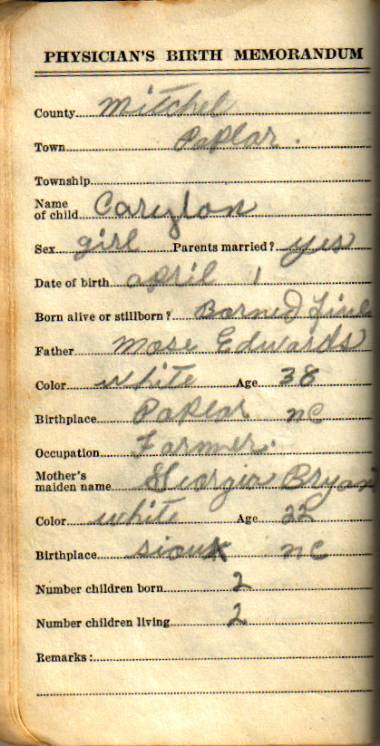 PHYSICIAN'S BIRTH MEMORANDUM
County Mitchel
Town Poplar.
Township
Name of child Carylon
Sex girl Parents married? yes
Date of birth april 1
Born alive or stillborn? Borned
Father Mose Edwards
Color white Age 38
Birthplace Poplar NC
Occupation Farmer.
Mother's maiden name Georgia Bryan
Color white Age 22
Birthplace Sioux NC
Number children born 2
Number children living 2
Remarks: